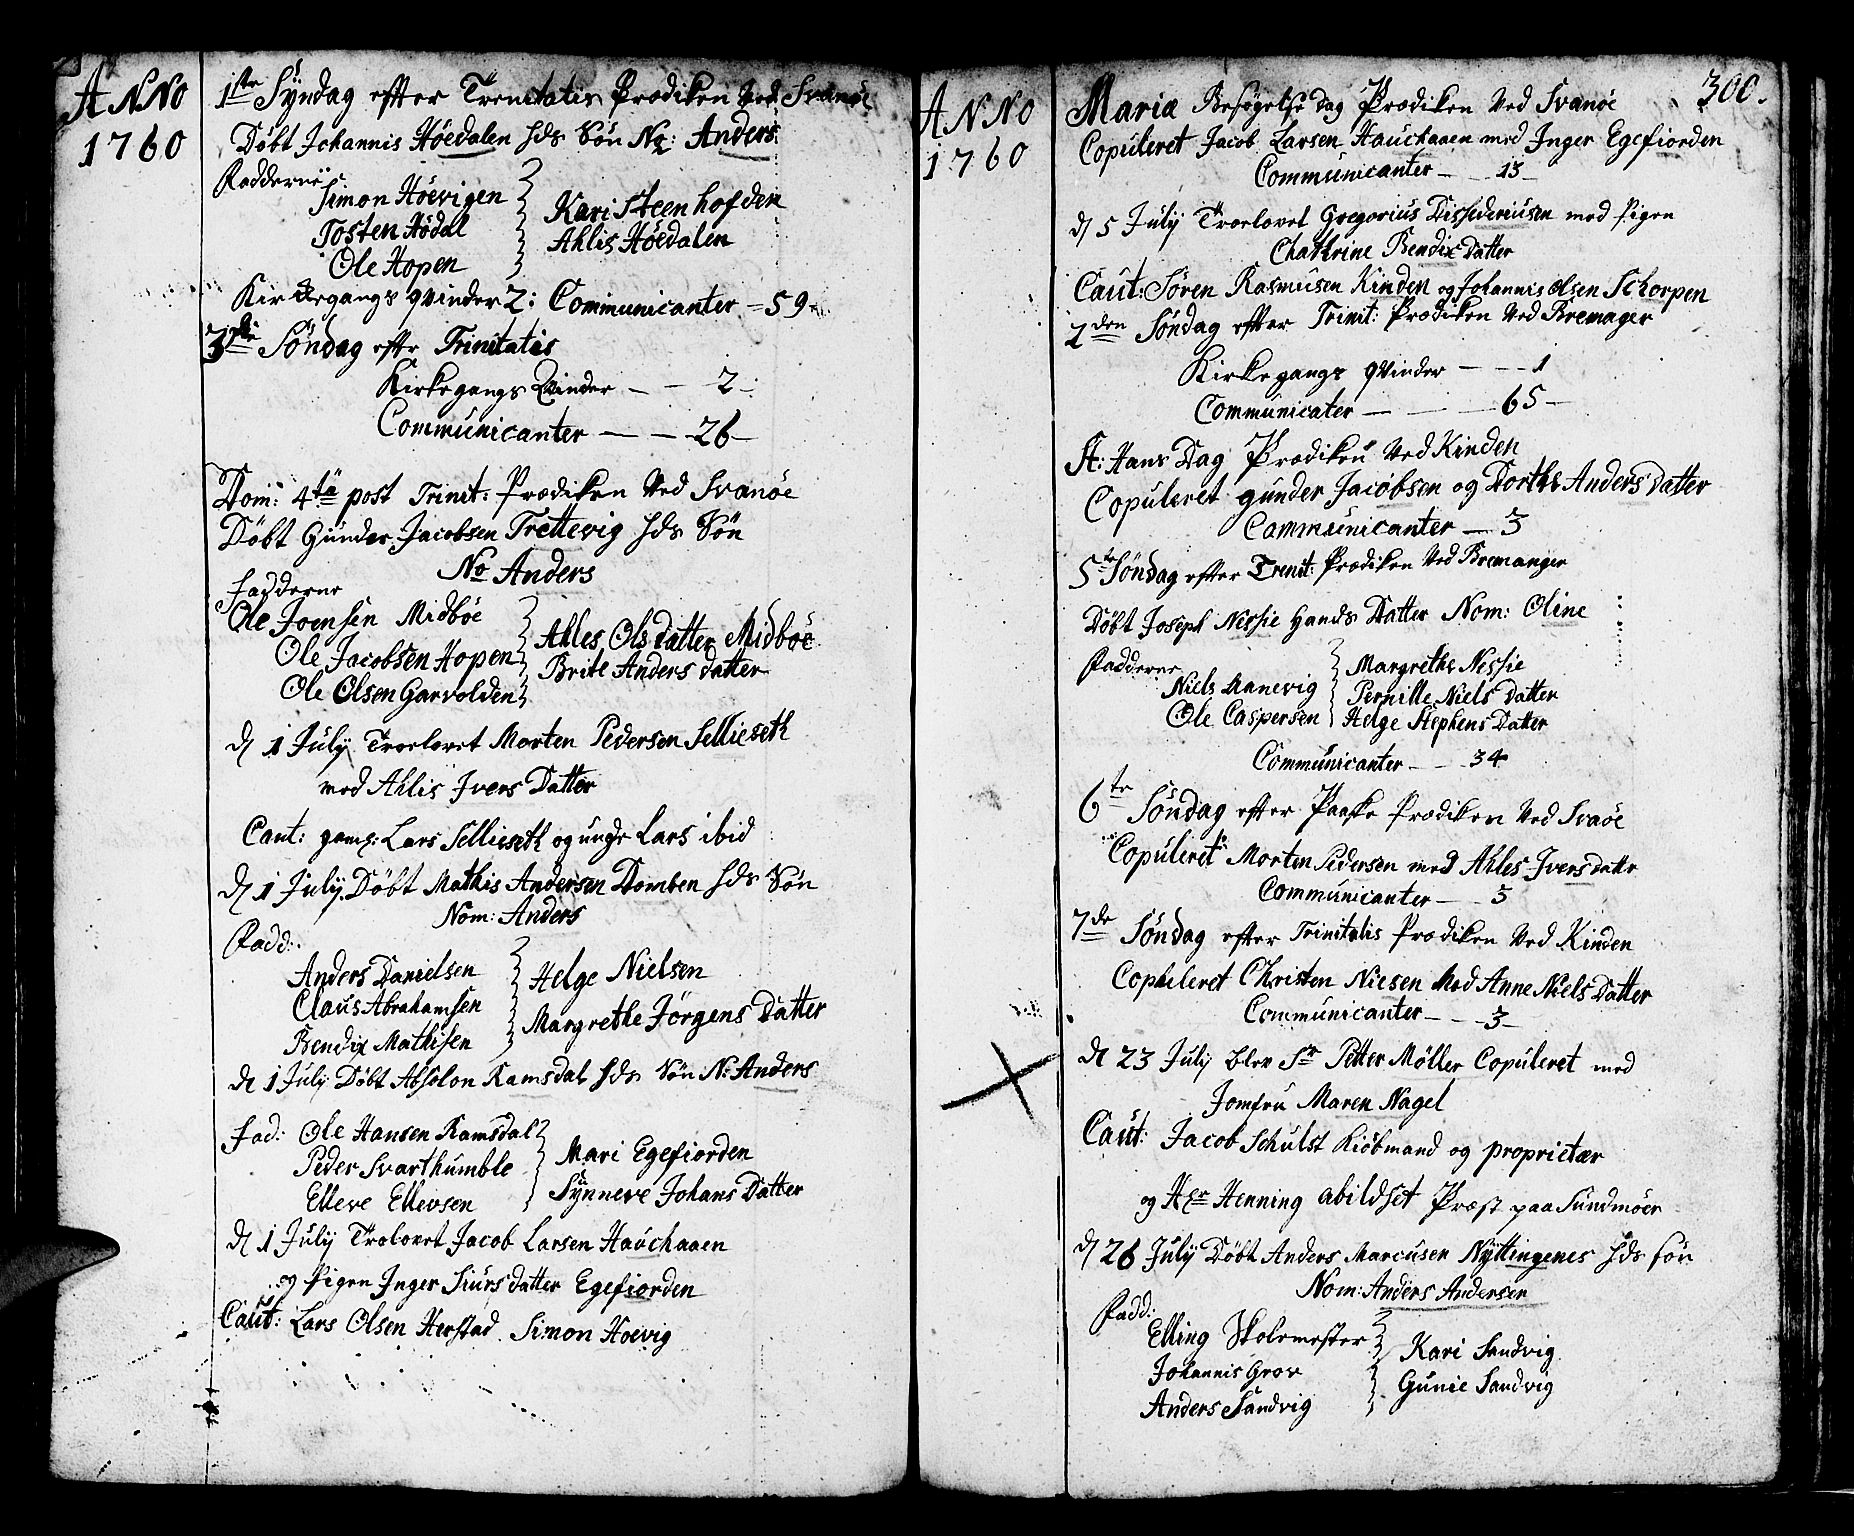 ANNO
1760
1ste Syndag efter Trenitatis Prædiken Ved Svanøe
Döbt Johannis Höedalen hds Sön No: Anders
Faddernē
Simon Höevigen
Tosten Hödal
Ole Hopen
Kari Steenhofden
Ahlis Höedalen
Kirkegangs qvinder 2: Communicanter - 59 -
3die Söndag efter Trinitatis
Kirkegangs Qvinder - - 2 -
Communicanter - - 26 -
Dom: 4ta post Trinit: Prædiken Ved Svanöe
Döbt Gunder Jacobsen Trettevig hds Sön
No Anders
Fadderne
Ole Joensen Midböe
Ole Jacobsen Hopen
Ole Olsen Garvolden
Ahles Ols datter Midböe
Brite Anders datter
d 1 July Troelovet Morten Pedersen Sellieseth
med Ahlis Ivers Datter
Caut: gaml: Lars Sellieseth og unge Lars ibid
d 1 July Döbt Mathis Andersen Domben hds Sön
Nom: Anders
Fadd:
Anders Danielsen
Claus Abrahamsen
Bendix Mathisen
Helge Nielsen
Margrethe Jörgens Datter
d 1 July Döbt Absolon Ramsdal hds Sön N: Anders
Fad: Ole Hansen Ramsdal
Peder Svarthumble
Elleve Ellevsen
Mari Egefiorden
Synneve Johans Datter
d 1 July Trolovet Jacob Larsen Hauchaaen
og Pigen Inger Siurs datter Egefiorden
Caut: Lars Olsen Herstad. Simon Hoevig
ANNO
1760
300.
Mariæ Besögelse dag Prædiken Ved Svanöe
Copuleret Jacob Larsen Hauchaaen med Inger Egefiorden
Communicanter - - 13 -
d 5 July Troelovet Gregorius Dissideriusen med Pigen
Chathrine Bendix Datter
Caut: Sören Rasmusen Kinden og Johannis Olsen Schorpen
2den Söndag efter Trinit: Prædiken Ved Bremager
Kirkegangs qvinder - - - 1
Communicater - - - 65 -
St: Hans Dag Prædiken Ved Kinden
Copuleret gunder Jacobsen og Dorthe Anders datter
Communicanter - 3
5te Söndag efter Trenit: Prædiken Ved Bremanger
Döbt Joseph Nessie hands Datter Nom: Oline
Fadderne
Niels Aanevig
Ole Caspersen
Margrethe Nessie
Pernille Niels Datter
Helge Stephens Datter
Communicanter - - 34
6te Söndag efter Paaske Prædiken Ved Svaöe
Copuleret Morten Pedersen med Ahles Ivers datr
Communicanter - - 3
7de Söndag efter Trinitatis Prædiken Ved Kinden
Copuleret Christen Niesen Med Anne Niels Datter
Communicanter - - 3 -
d 23 July blev Sr Petter Möller Copuleret med
Jomfru Maren Nagel
Caut: Jacob Schulst Kiöbmand og proprietær
og Hr Henning abildset Præst paa Sundmöer
d 26 July Döbt Anders Marcusen Nyttingenes hds sön
Nom: Anders Andersen
Fadd:
Elling Skolemester
Johannis Grov
Anders Sandvig
Kari Sandvig
Gunie Sandvig